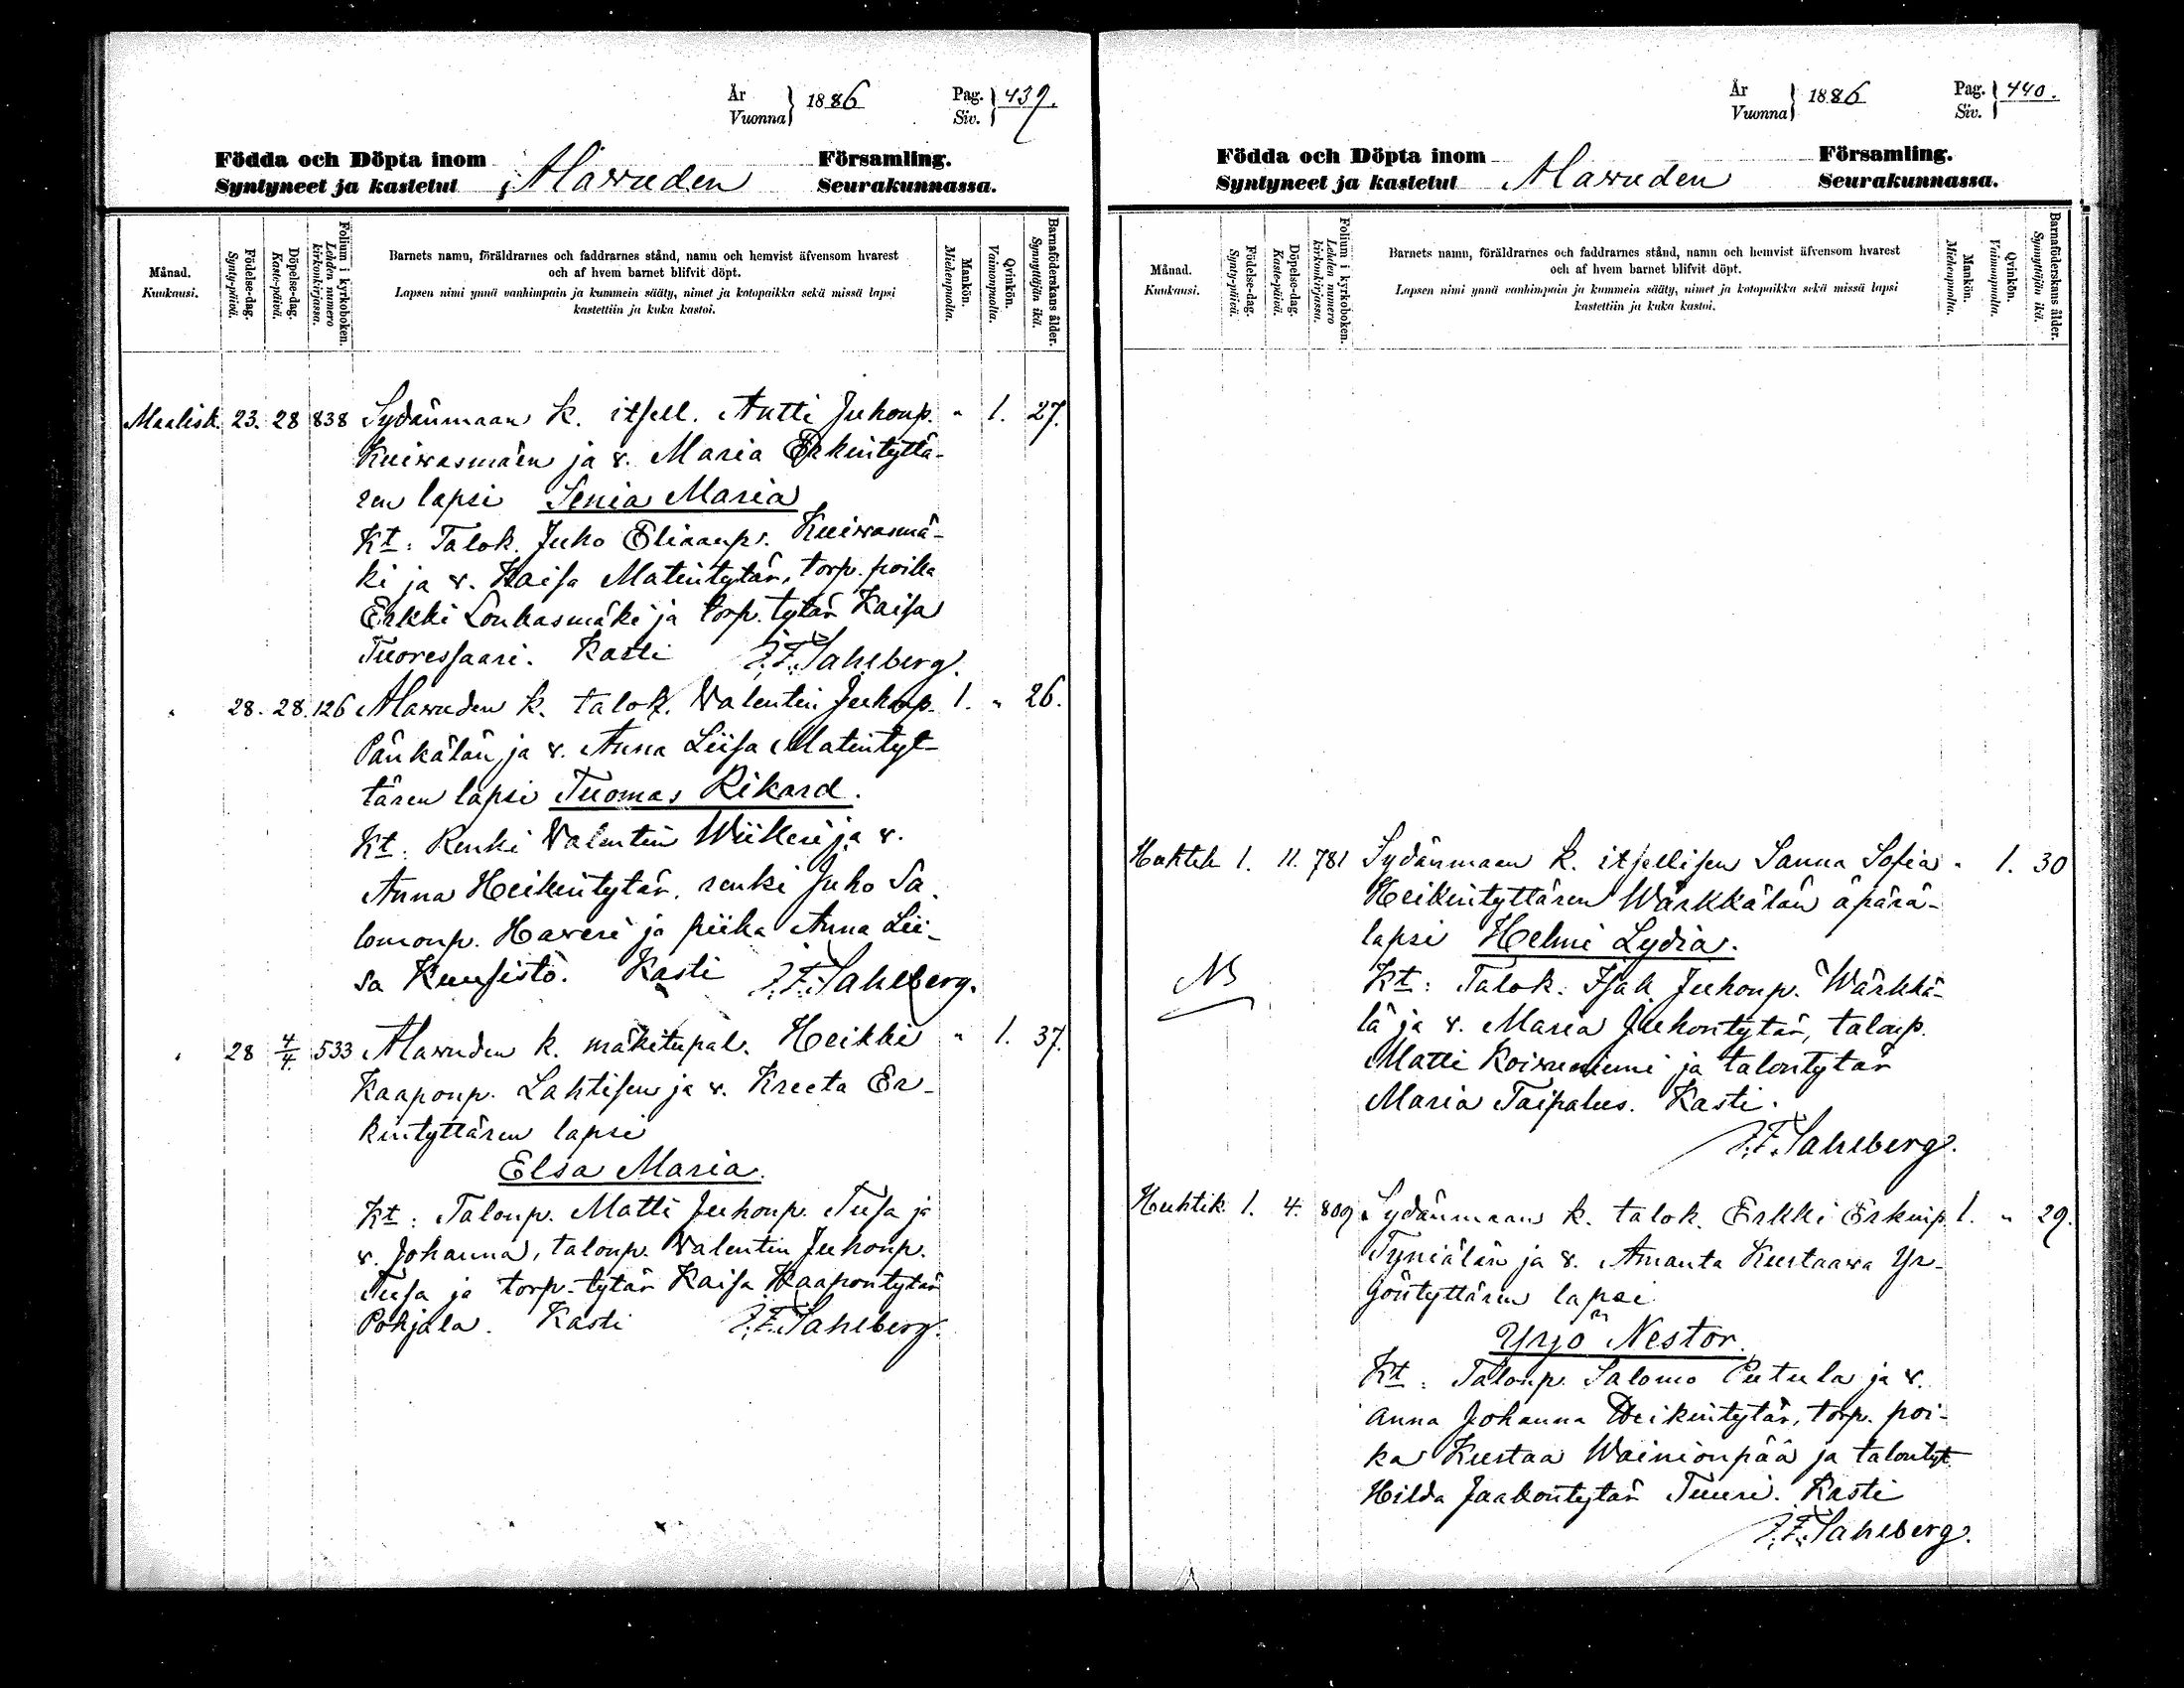 År
Vuonna } 1886
Pag.
Siv. } 439.
Födda och Döpta inom
Syntyneet ja kastetut
Alavuden
Församling.
Seurakunnassa.
Månad.
Kuukausi.
Födelse-dag.
Synty-päivä.
Döpelse-dag.
Kaste-päivä.
Folium i kyrkoboken.
Lehden numero
kirkonkirjassa.
Barnets namn, föräldrarnes och faddrarnes stånd, namn och hemvist äfvensom hvarest
och af hvem barnet blifvit döpt.
Lapsen nimi ynnä vanhimpain ja kummein sääty, nimet ja kotopaikka sekä missä lapsi
kastettiin ja kuka kastoi.
Mankön.
Miehenpuolta.
Qvinkön.
Vaimonpuolta.
Barnaföderskans ålder.
Synnyttäjän ikä.
Maalisk. 23. 28 838 Sydänmaan k. itsell. Antti Juhonp. " 1. 27.
Kuivasmäen ja v. Maria Erkintyttä-
ren lapsi Senia Maria
Kt: Talok. Juho Eliaanp. Kuivasmä-
ki ja v. Kaisa Matintytär, torp. poika
Erkki Loukasmäki ja torp. tytär Kaisa
Tuoressaari. Kasti J.F. Sahlberg.
" 28. 28. 126 Alavuden k. talok. Valentin Juhonp. 1. " 26.
Pänkälän ja v. Anna Liisa Matintyt-
tären lapsi Tuomas Rikard.
Kt: Renki Valentin Wiikeri ja v.
Anna Heikintytär, renki Juho Sa
lomonp. Haveri ja piika Anna Lii-
sa Kuusistö. Kasti J.F. Sahlberg.
" 28 4/4. 533 Alavuden k. mäkitupal. Heikki " 1. 37.
Kaaponp. Lahtisen ja v. Kreeta Er-
kintyttären lapsi
Elsa Maria.
Kt: Talonp. Matti Juhonp. Tusa ja
v. Johanna, talonp. Valentin Juhonp.
Tusa ja torp. tytär Kaisa Kaapontytär
Pohjala. Kasti J.F. Sahlberg.
År
Vuonna } 1886
Pag.
Siv. } 440.
Födda och Döpta inom
Syntyneet ja kastetut
Alavuden
Församling.
Seurakunnassa.
Månad.
Kuukausi.
Födelse-dag.
Synty-päivä.
Döpelse-dag.
Kaste-päivä.
Folium i kyrkoboken.
Lehden numero
kirkonkirjassa.
Barnets namn, föräldrarnes och faddrarnes stånd, namn och hemvist äfvensom hvarest
och af hvem barnet blifvit döpt.
Lapsen nimi ynnä vanhimpain ja kummein sääty, nimet ja kotopaikka sekä missä lapsi
kastettiin ja kuka kastoi.
Mankön.
Miehenpuolta.
Qvinkön.
Vaimonpuolta.
Barnaföderskans ålder.
Synnyttäjän ikä.
Huhtik 1. 11. 781 Sydänmaan k. itsellisen Sanna Sofia " 1. 30
Heikintyttären Wärkkälän äpärä-
lapsi Helmi Lydia.
NB
Kt: Talok. Isak Juhonp. Wärkkä-
lä ja v. Maria Juhontytär, talonp.
Matti Koivuniemi ja talontytär
Maria Taipalus. Kasti.
J.F. Sahlberg.
Huhtik. 1. 4. 809 Sydänmaan k. talok. Erkki Erkinp. 1. " 29.
Tyniälän ja v. Amanta Kustaava Yr-
jöntyttären lapsi
Yrjö Nestor.
Kt: Talonp. Salomo Putula ja v.
Anna Johanna Heikintytär, torp. poi-
ka Kustaa Wainionpää ja talontyt.
Hilda Jaakontytär Tuuri. Kasti
J.F. Sahlberg.